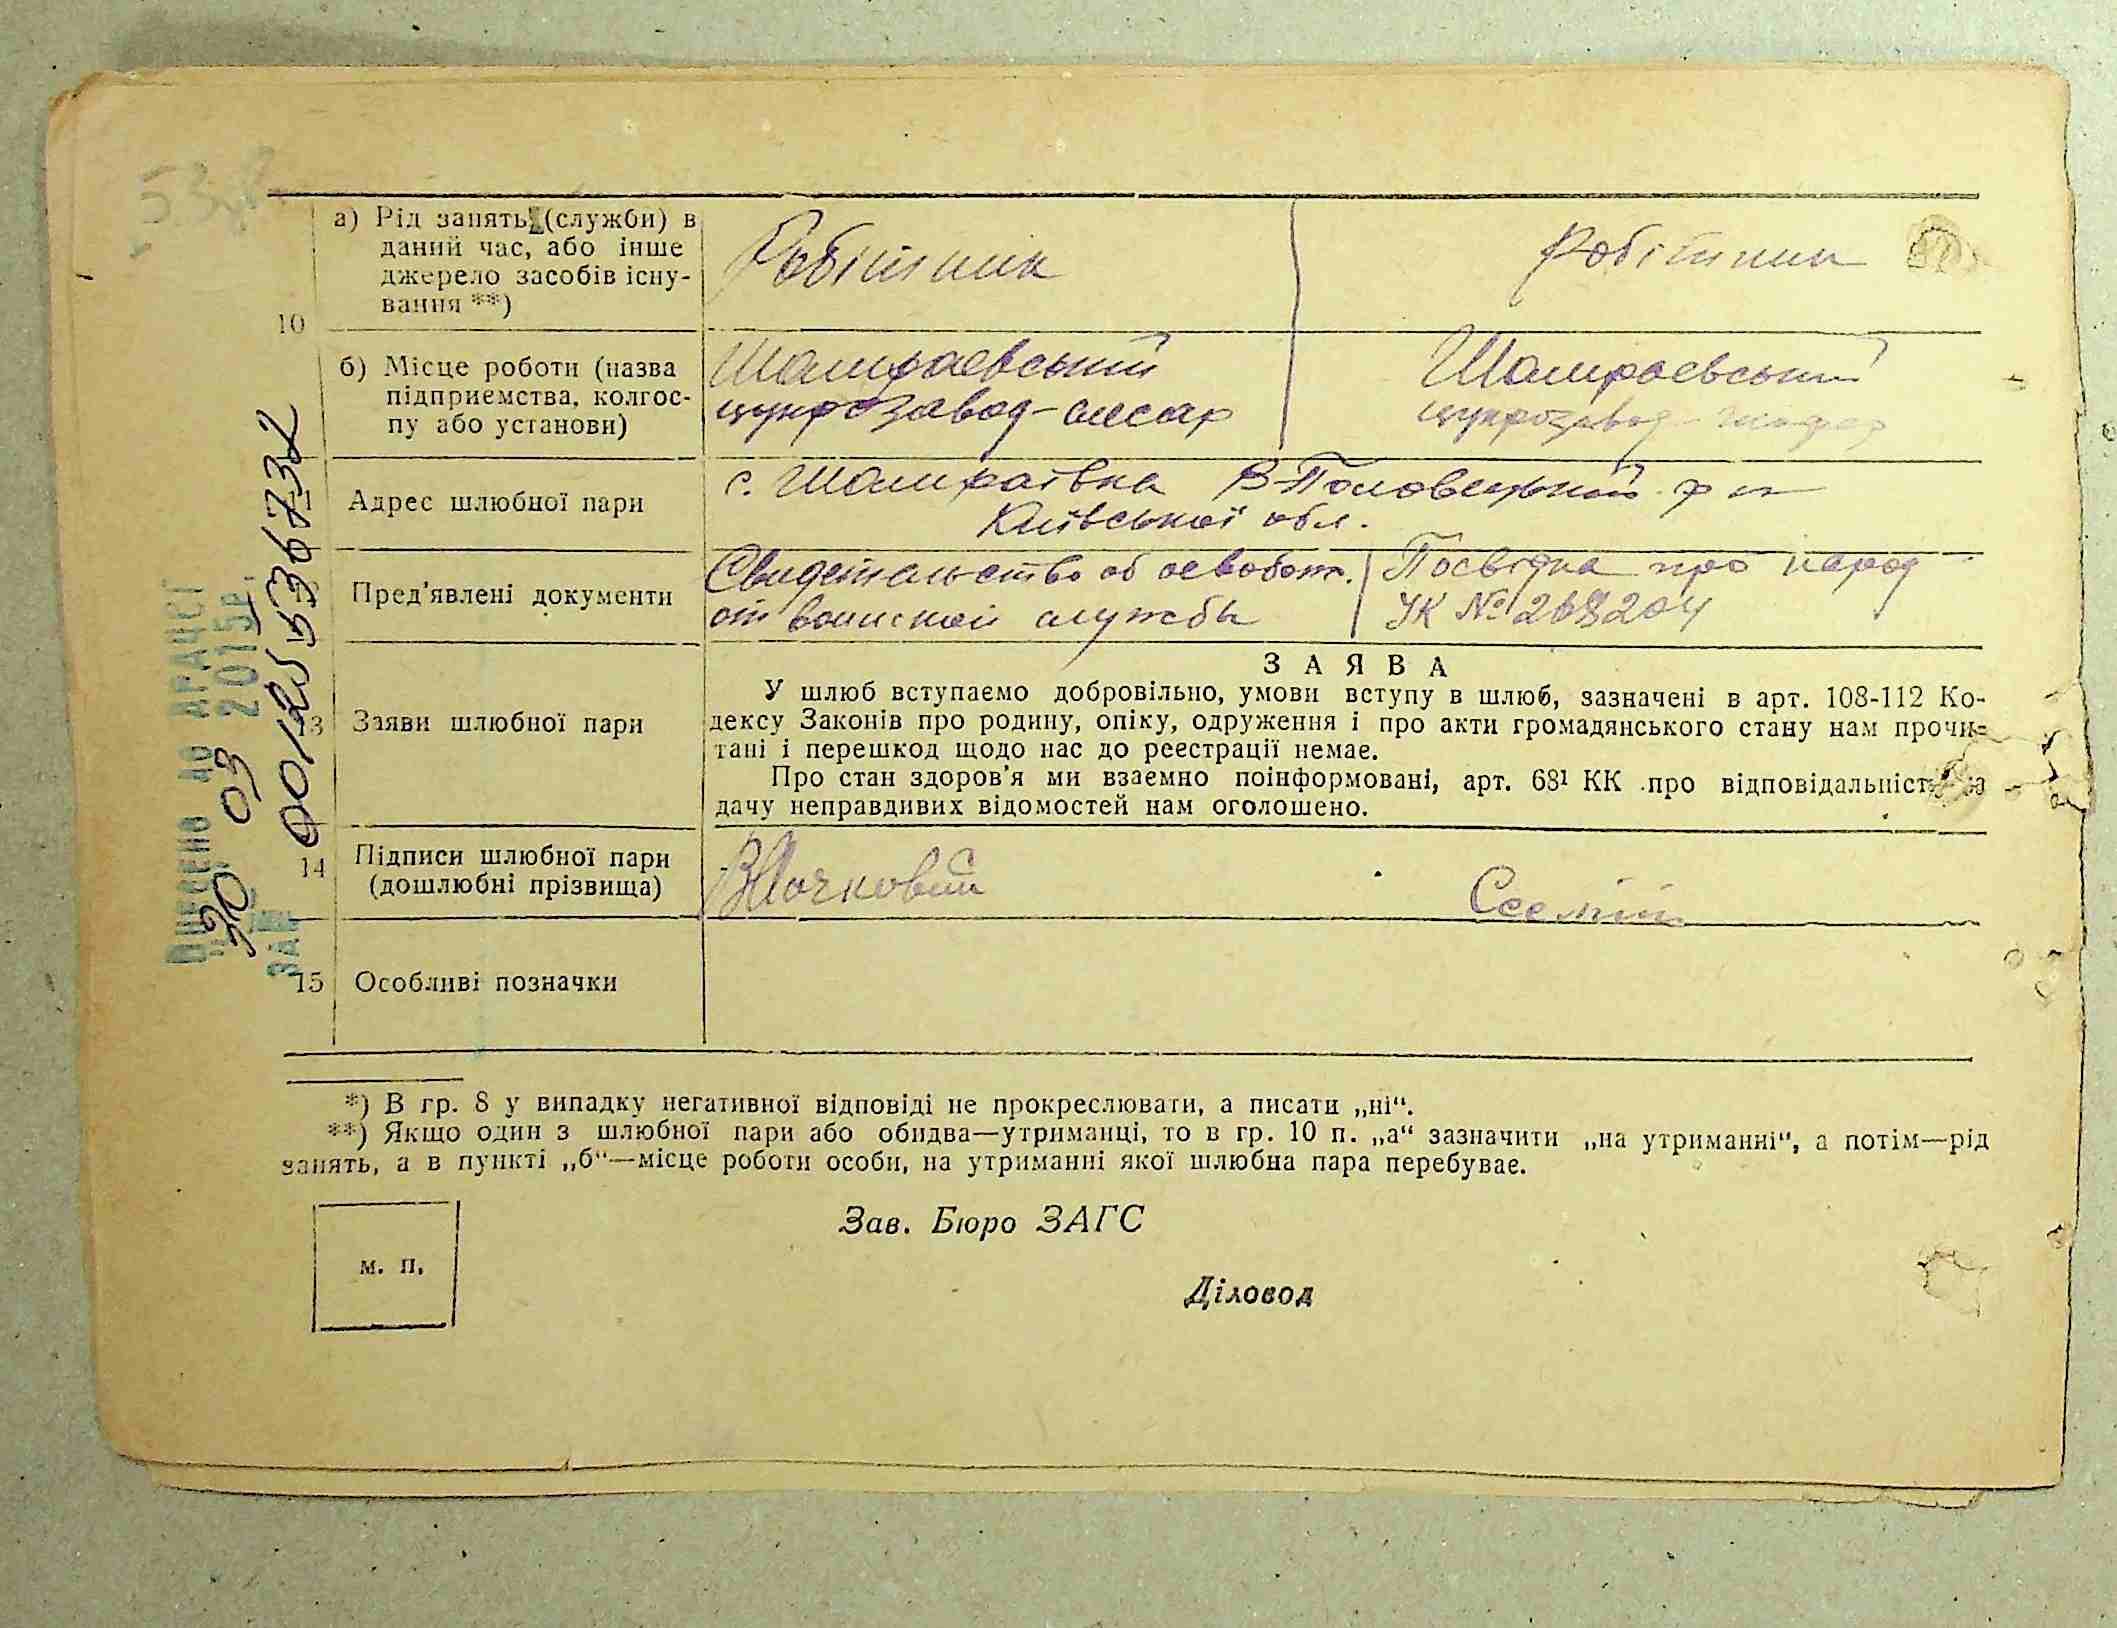 а) Рід занять (служби) в
даний час, або інше
джерело засобів існу-
вання **)
Робітник
Робітник
10
б) Місце роботи (назва
підприємства, колгос-
пу або установи)
Шамраевський
цукрозавод-слесар
Шамраевський
цукрозавод
Адрес шлюбної пари
с. Шамраївка В-Половецький р-н
Київської обл.
Пред'явлені документи
Свидетельство об освобож.
от воинской службы
Посвідка про народ
УК № 268204
13
Заяви шлюбної пари
ЗАЯВА
У шлюб вступаємо добровільно, умови вступу в шлюб, зазначені в арт. 108-112 Ко-
дексу Законів про родину, опіку, одруження і про акти громадянського стану нам прочи-
тані і перешкод щодо нас до реєстрації немає.
Про стан здоров'я ми взаємно поінформовані, арт. 68¹ КК про відповідальність за
дачу неправдивих відомостей нам оголошено.
14
Підписи шлюбної пари
(дошлюбні прізвища)
15
Особливі позначки
*) В гр. 8 у випадку негативної відповіді не прокреслювати, а писати „ні“.
**) Якщо один з шлюбної пари або обидва—утриманці, то в гр. 10 п. „а“ зазначити „на утриманні“, а потім—рід
занять, а в пункті „б“—місце роботи особи, на утриманні якої шлюбна пара перебуває.
м. п.
Зав. Бюро ЗАГС
Діловод
Внесено до ДРАЦСГ
30 03 2015р.
00125536732